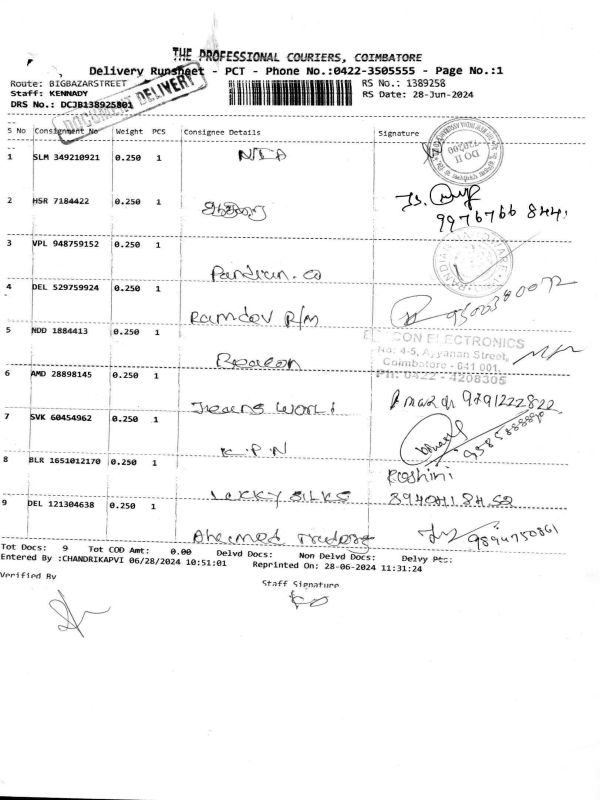 THE PROFESSIONAL COURIERS, COIMBATORE
Delivery Runsheet - PCT - Phone No.:0422-3505555 - Page No.:1
Route: BIGBAZARSTREET
RS No.: 1389258
Staff: KENNADY
RS Date: 28-Jun-2024
DRS No.: DCJB138925801
DOCUMENT DELIVERY
S No Consignment No Weight PCS Consignee Details Signature
1 SLM 349210921 0.250 1 NIA
DO II
2 HSR 7184422 0.250 1
9976766844
3 VPL 948759152 0.250 1 Pandian. co
4 DEL 529759924 0.250 1 Ramdev R/M
9500380072
5 NDD 1884413 0.250 1 Beacon
CON ELECTRONICS
No: 4-5, Ayyanan Street,
Coimbatore - 641 001.
PH: 0422 - 4208305
6 AMD 28898145 0.250 1 Jeans World
9791222822
7 SVK 60454962 0.250 1 K.P.N
8 BLR 1651012170 0.250 1 Lekky Silks
Roshini
9 DEL 121304638 0.250 1 Ahamed Traders
9894750861
Tot Docs: 9 Tot COD Amt: 0.00 Delvd Docs: Non Delvd Docs: Delvy Pts:
Entered By :CHANDRIKAPVI 06/28/2024 10:51:01 Reprinted On: 28-06-2024 11:31:24
Verified By Staff Signature